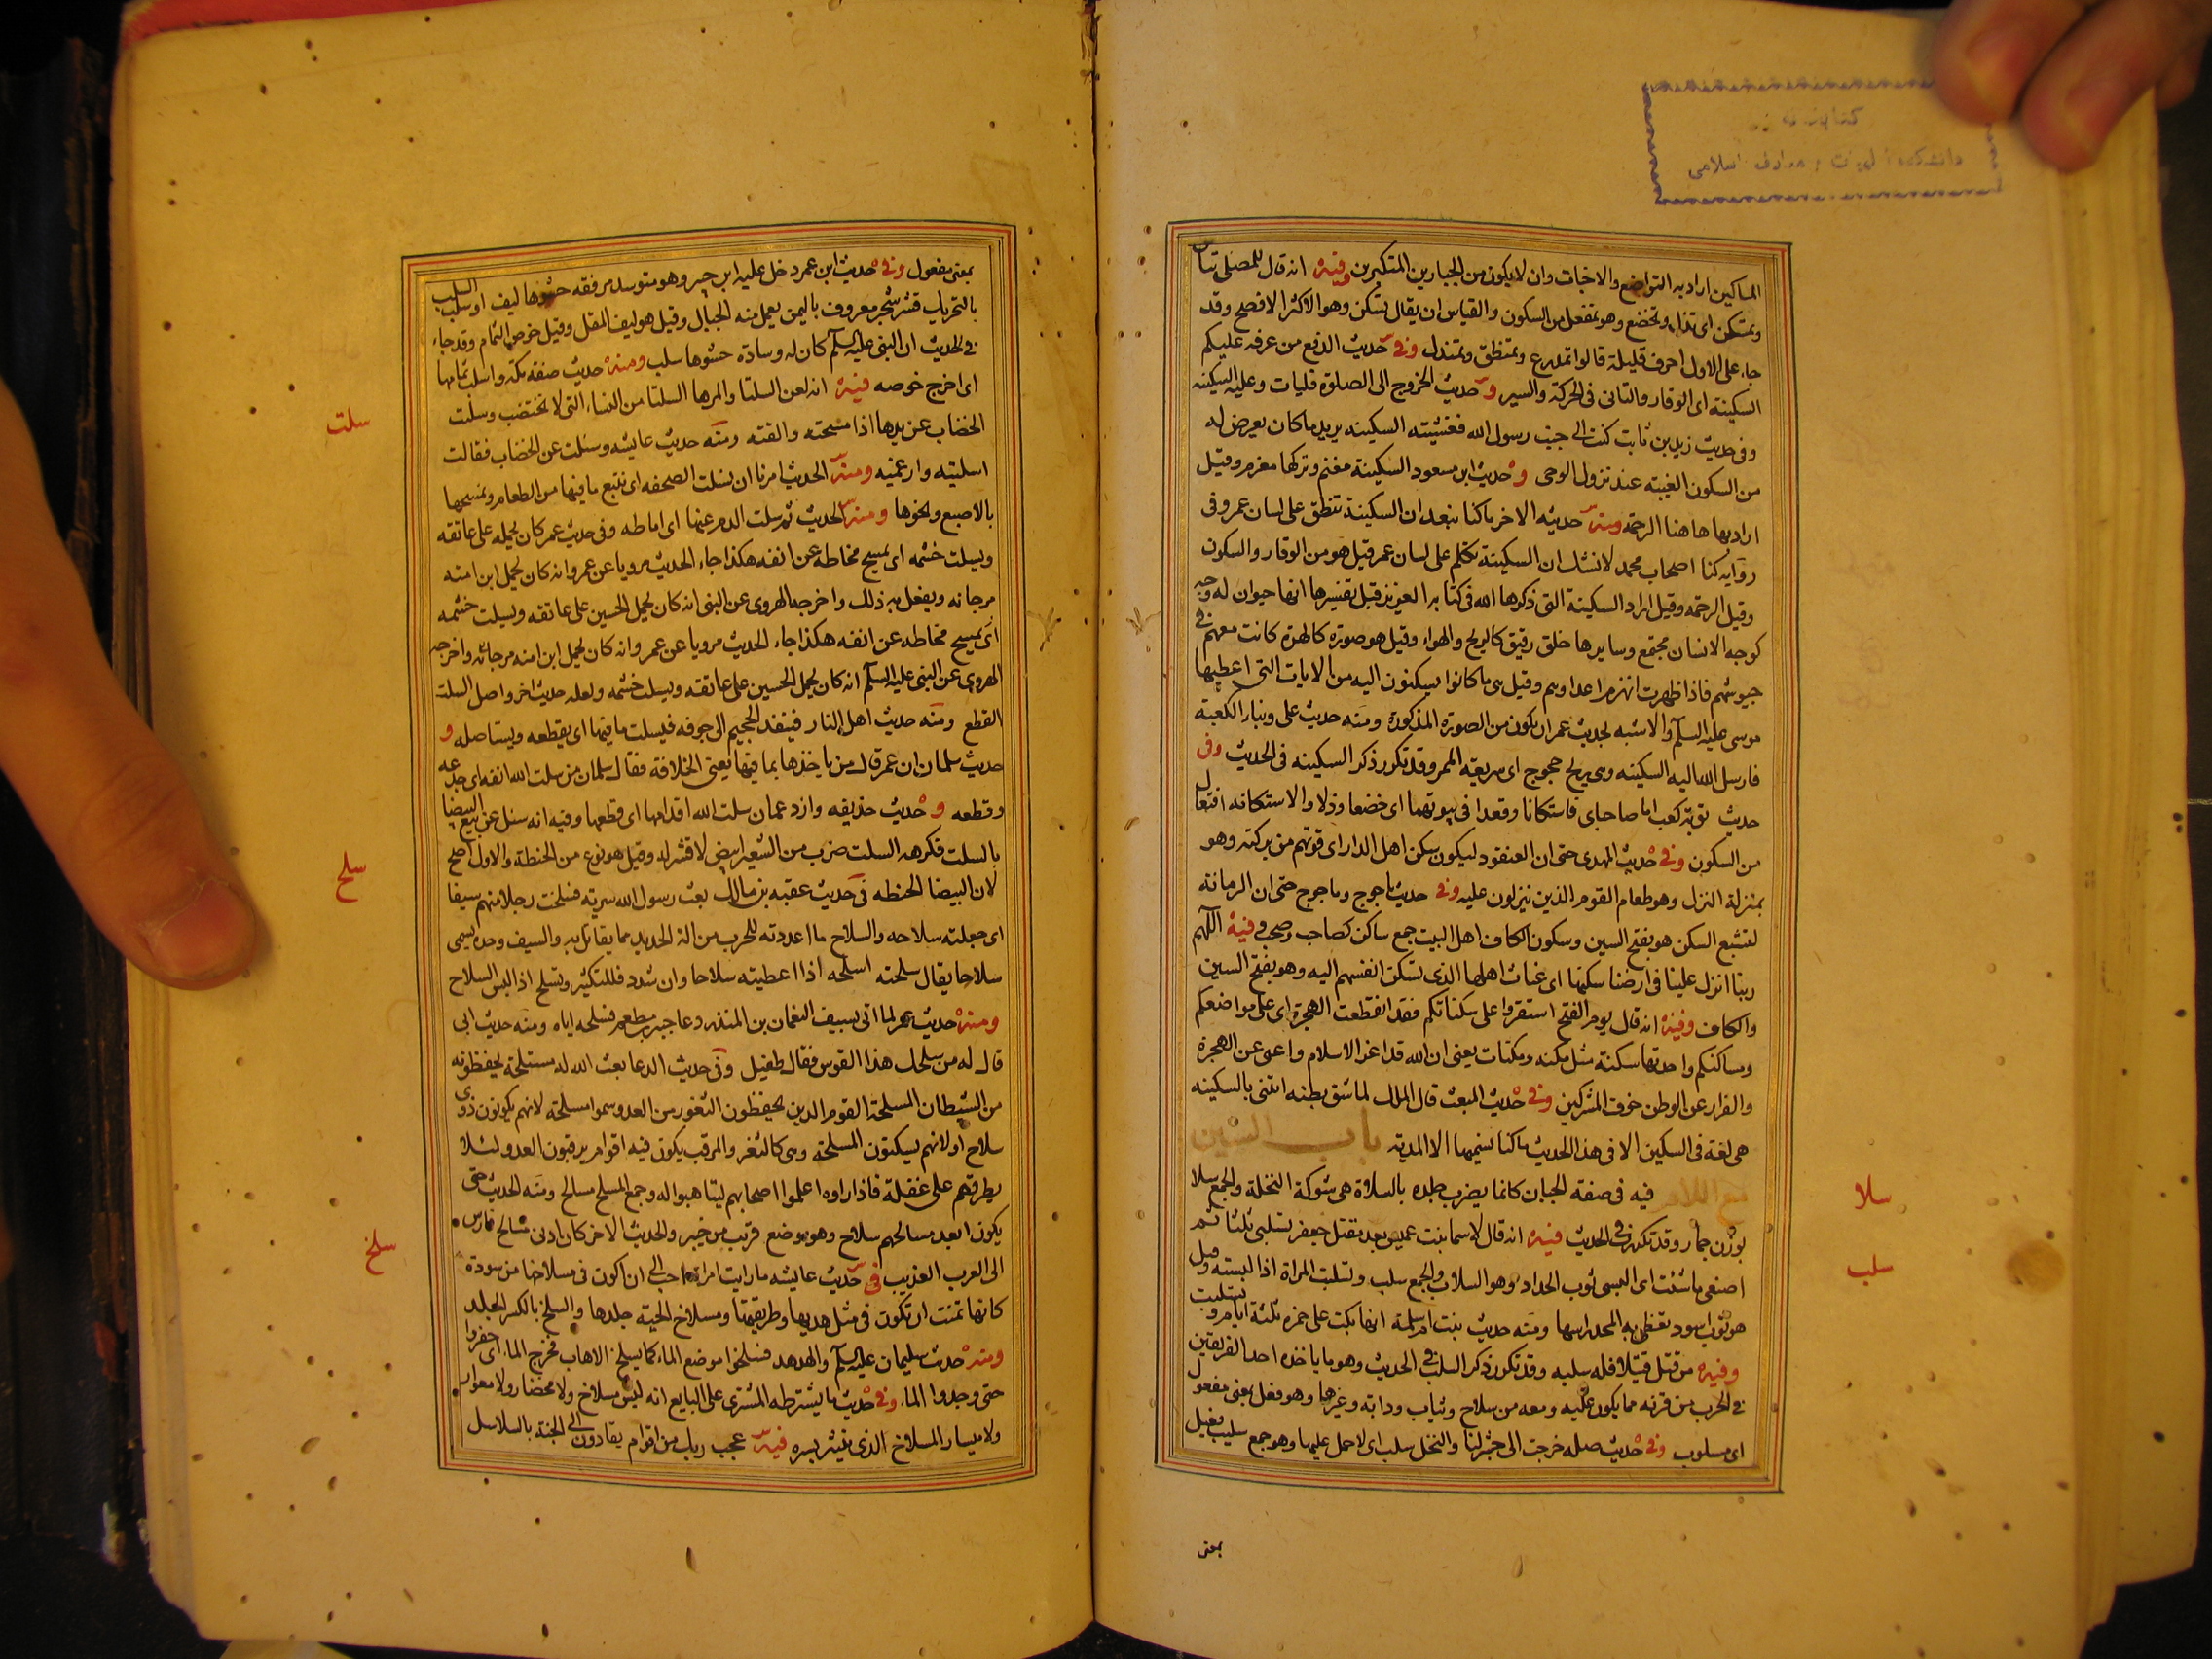 المساكين اراد به التواضع والاخبات وان لا يكون من الجبارين المتكبرين وفيه انه قال للمصلى تباس
وتمسكن اى تذلل وتخضع وهو تمفعل من السكون والقياس ان يقال تسكن وهو الاكثر الافصح وقد
جاء على الاول احرف قليلة قالوا تمدرع وتمنطق وتمندل وفى حديث الدفع من عرفه عليكم
السكينة اى الوقار والتانى فى الحركة والسير و حديث الخروج الى الصلوة فليات وعليه السكينه
وفى حديث زيد بن ثابت كنت الى جنب رسول الله فغشيته السكينه يريد ما كان يعرض له
من السكون الغيبته عند نزول الوحى و حديث ابن مسعود السكينة مغنم وتركها مغرم وقيل
اراد بها هاهنا الرحمة ومنه حديثه الاخر ما كنا نبعد ان السكينة تنطق على لسان عمر وفى
روايه كنا اصحاب محمد لا نشك ان السكينة تكلم على لسان عمر قيل هو من الوقار والسكون
وقيل الرحمه وقيل اراد السكينة التى ذكرها الله فى كتابه العزيز قيل تفسيرها انها حيوان له وجه
كوجه الانسان مجتمع وسايرها خلق رقيق كالريح والهواء وقيل هو صورة كالهرة كانت معهم فى
جيوشهم فاذا ظهرت انهزم اعداوهم وقيل هى ما كانوا يسكنون اليه من الايات التى اعطيها
موسى عليه السلام والاشبه لحديث عمر ان يكون من الصورة المذكورة ومنه حديث على وبناء الكعبة
فارسل الله اليه السكينه وهى ريح خجوج اى سريعة الممر وقد تكرر ذكر السكينه فى الحديث وفى
حديث توبة كعب اما صاحباى فاستكانا وقعدا فى بيوتهما اى خضعا وذلا والاستكانه افتعال
من السكون وفى حديث المهدى حتى ان العنقود ليكون سكن اهل الدار اى قوتهم من بركته وهو
بمنزلة النزل وهو طعام القوم الذين ينزلون عليه وفى حديث ياجوج وماجوج حتى ان الرمانة
لتشبع السكن هو بفتح السين وسكون الكاف اهل البيت جمع ساكن كصاحب وصحب وفيه اللهم
ربنا انزل علينا فى ارضنا سكنها اى غياث اهلها الذى تسكن انفسهم اليه وهو بفتح السين
والكاف وفيه انه قال يوم الفتح استقروا على سكناتكم فقد انقطعت الهجرة اى على مواضعكم
ومساكنكم واحدتها سكنة مثل مكنه ومكنات يعنى ان الله قد اعز الاسلام واغنى عن الهجرة
والفرار عن الوطن خوف المشركين وفى حديث المبعث قال الملك لما شق بطنه ائتنى بالسكينه
هى لغة فى السكين الا فى هذا الحديث ما كنا نسميها الا المدية باب السين
مع اللام فيه فى صفة الجبان كانما يضرب جلده بالسلاة هى شوكة النخلة والجمع سلا
بوزن جمار وقد تكرر فى الحديث فيه انه قال لاسما بنت عميس بعد مقتل جعفر تسلبى ثلثا ثم
اصنعى ما شئت اى البسى ثوب الحداد وهو السلاب والجمع سلب وتسلبت المراة اذا لبسته وقيل
هو ثوب اسود تغطى به المحد راسها ومنه حديث بنت ام سلمة انها بكت على حمزه ثلثة ايام وتسلبت
وفيه من قتل قتيلا فله سلبه وقد تكرر ذكر السلب فى الحديث وهو ما ياخذه احد الفريقين
فى الحرب من قرنه مما يكون عليه ومعه من سلاح وثياب ودابة وغيرها وهو فعل بمعنى مفعول
اى مسلوب وفى حديث صله خرجت الى جشر لنا والنخل سلب اى لا حمل عليها وهو جمع سليب فعيل
بمعنى
سلا
سلب
بمعنى مفعول وفى حديث ابن عمر دخل عليه ابن جبير وهو متوسد مرفقه حشوها ليف او سلب السلب
بالتحريك قشر شجر معروف باليمن يعمل منه الحبال وقيل هو ليف المقل وقيل خوص الثمام وقد جاء
فى الحديث ان النبى عليه السلم كان له وسادة حشوها سلب ومنه حديث صفة مكة واسلب ثمامها
اى اخرج خوصه فيه انه لعن السلتا والمرها السلتا من النساء التى لا تختضب وسلت
الخضاب عن يدها اذا مسحته والقته ومنه حديث عايشه وسئلت عن الخضاب فقالت
اسلتيه وارغميه ومنه الحديث امرنا ان نسلت الصحفه اى نتتبع ما فيها من الطعام ونمسحها
بالاصبع ونحوها ومنه الحديث ثم سلت الدم عنها اى اماطه وفى حديث عمر كان يحمله على عاتقه
ويسلت خشمه اى يمسح مخاطه عن انفه هكذا جاء الحديث مرويا عن عمر وانه كان يحمل ابن امته
مرجانه ويفعل به ذلك واخرجه الهروى عن النبى انه كان يحمل الحسين على عاتقه ويسلت خشمه
اى يمسح مخاطه عن انفه هكذا جاء الحديث مرويا عن عمر وانه كان يحمل ابن امته مرجانه واخرجه
الهروى عن النبى عليه السلم انه كان يحمل الحسين على عاتقه ويسلت خشمه ولعله حديث اخر واصل السلت
القطع ومنه حديث اهل النار فينفذ الحجيم الى جوفه فيسلت ما فيها اى يقطعه ويستاصله و
حديث سلمان ان عمر قال من ياخذها بما فيها يعنى الخلافة فقال سلمان من سلت الله انفه اى جدعه
وقطعه و حديث حذيفه وازد عمان سلت الله اقدامها اى قطعها وفيه انه سئل عن بيع البيضا
بالسلت فكرهه السلت ضرب من الشعير ابيض لا قشر له وقيل هو نوع من الحنطة والاول اصح
لان البيضا الحنطه فى حديث عقبه بن مالك بعث رسول الله سرية فسلحت رجلا منهم سيفا
اى جعلته سلاحه والسلاح ما اعددته للحرب من الة الحديد مما يقاتل به والسيف وحده يسمى
سلاحا يقال سلحته اسلحه اذا اعطيته سلاحا وان شدد فللتكثير وتسلح اذا لبس السلاح
ومنه حديث عمر لما اتى بسيف النعمان بن المنذر دعا جبير بن مطعم فسلحه اياه ومنه حديث ابى
قال له من سلحك هذا القوس فقال طفيل وفى حديث الدعا بعث الله له مسلحة يحفظونه
من الشيطان المسلحة القوم الذين يحفظون الثغور من العدو سموا مسلحة لانهم يكونون ذوى
سلاح او لانهم يسكنون المسلحة وهى كالثغر والمرقب يكون فيه اقوام يرقبون العدو لئلا
يطرقهم على غفلة فاذا راوه اعلموا اصحابهم ليتاهبوا له وجمع المسلح مسالح ومنه الحديث حتى
يكون ابعد مسالحهم سلاح وهو موضع قريب من خيبر والحديث الاخر كان ادنى مسالح فارس
الى العرب العذيب فى حديث عايشه ما رايت امراة احب الى ان اكون فى مسلاخها من سودة
كانها تمنت ان تكون فى مثل هديها وطريقتها ومسلاخ الحية جلدها والسلخ بالكسر الجلد
ومنه حديث سليمان عليه السلم والهدهد فسلخوا موضع الماء كما يسلخ الاهاب فخرج الماء اى حفروا
حتى وجدوا الماء وفى حديث ما يشترطه المشترى على البايع انه ليس مسلاخ ولا مخضار ولا معوار
ولا مبسار المسلاخ الذى ينتثر بسره فيه عجب ربك من اقوام يقادون الى الجنة بالسلاسل
سلت
سلح
سلخ